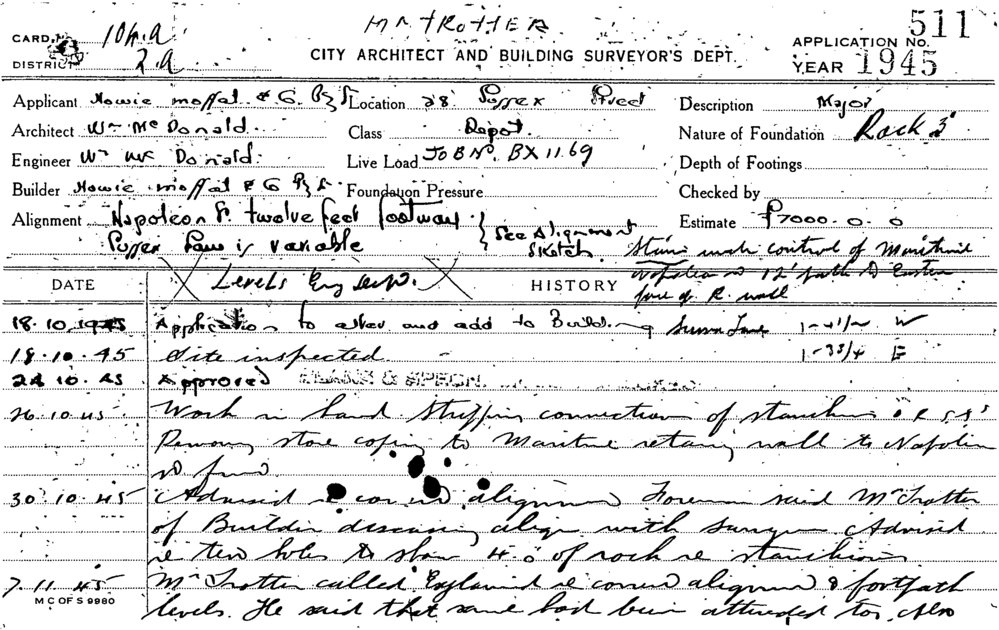 Mr TROTTER
511
CARD No 104.a
CITY ARCHITECT AND BUILDING SURVEYOR'S DEPT.
APPLICATION No.
DISTRICT 2a
YEAR 1945
Applicant Howie Moffat & Co. P/L Location 28 Sussex Street Description Major
Architect Wm McDonald. Class Depot Nature of Foundation Rock 3'
Engineer Wm Mc Donald. Live Load JOB No. BX 1169 Depth of Footings
Builder Howie Moffat & Co P/L Foundation Pressure Checked by
Alignment Napoleon St. twelve feet footway See Alignment Sketch Estimate £7000.0.0
Sussex Lane is variable
control of Maritime
12' path to Eastern
face of R. wall
Levels Eng Dept.
DATE HISTORY
18.10.1945 Application to alter and add to Building Sussex Lane W
18.10.45 Site inspected E
24.10.45 Approved PLANS & SPECN.
26.10.45 Work in hand Stripping connections of stanchions
Removing stone coping to Maritime retaining wall to Napoleon
30.10.45 Advised re alignment Foreman said Mr Trotter
of Builders discussing align with Surveyor Advised
re test holes to show of rock re stanchions
7.11.45 Mr Trotter called Explained re corner alignment & footpath
levels. He said that same had been attended to. Also
M C OF S 9980